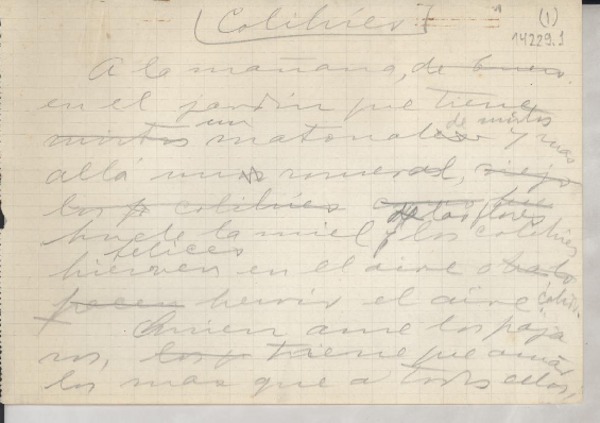 [Colibríes]
(1)
14229.1
A la mañana, de buen
en el jardín que tiene
mirtos un matorral de mirtos y mas
allá un romeral, viejo
los colibríes como que
huele la miel y las flores los colibríes
felices
hierven en el aire o
hacen hervir el aire
Quien ame los pája
ros, tiene que amar
los mas que a todos ellos,